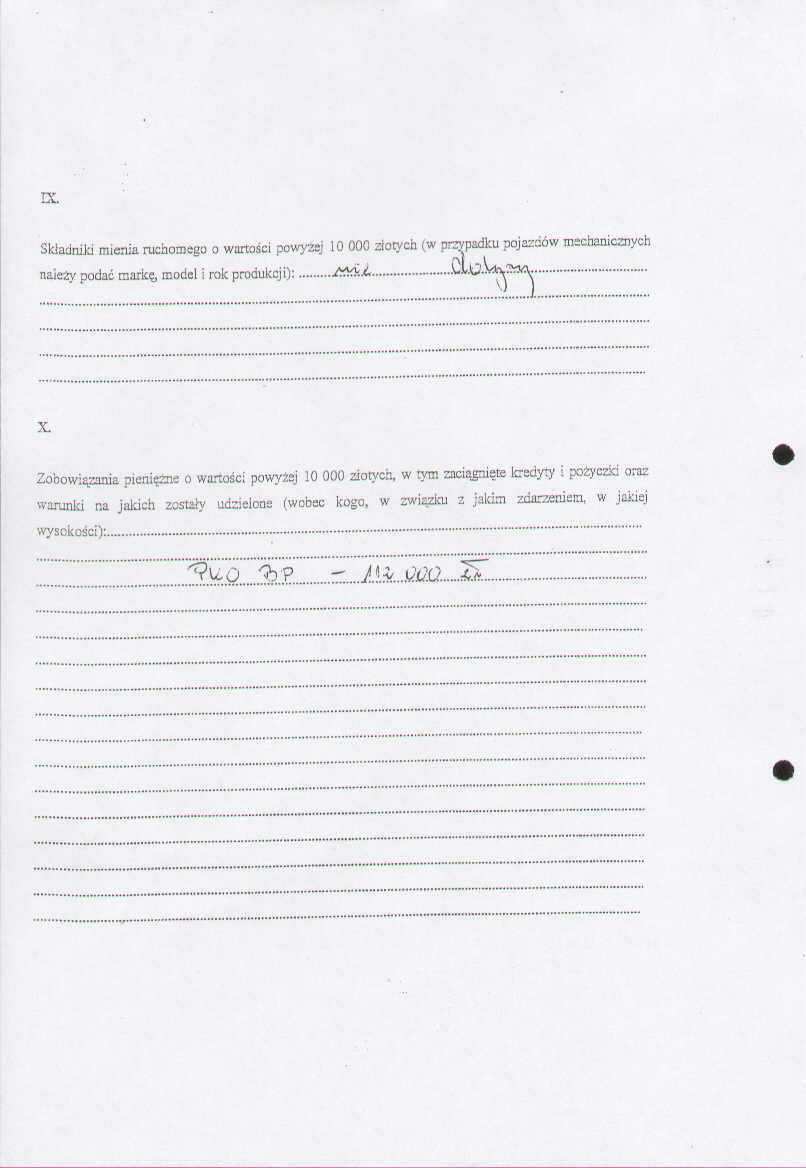 IX.
Składniki mienia ruchomego o wartości powyżej 10 000 złotych (w przypadku pojazdów mechanicznych
należy podać markę, model i rok produkcji): ..........nie........................dotyczy..............................
X.
Zobowiązania pieniężne o wartości powyżej 10 000 złotych, w tym zaciągnięte kredyty i pożyczki oraz
warunki na jakich zostały udzielone (wobec kogo, w związku z jakim zdarzeniem, w jakiej
wysokości):
PKO BP – 112 000 zł